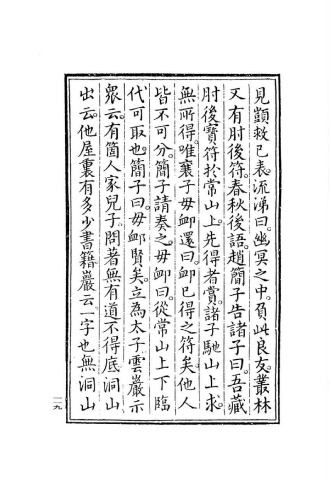 見顗救己表。流涕曰。幽冥之中。負此良友。叢林
又有肘後符。春秋後語。趙簡子告諸子曰。吾藏
肘後寶符於常山上。先得者賞。諸子馳山上求。
無所得。唯襄子毋卹還。曰。卹已得之符矣。他人
皆不可分。簡子請奏之。毋卹曰。從常山上下臨
代可取也。簡子曰。毋卹賢矣。立為太子雲巖示
衆云。有箇人家兒子。問著無有道不得底洞山
出云。他屋裏有多少書籍巖云一字也無洞山
一九